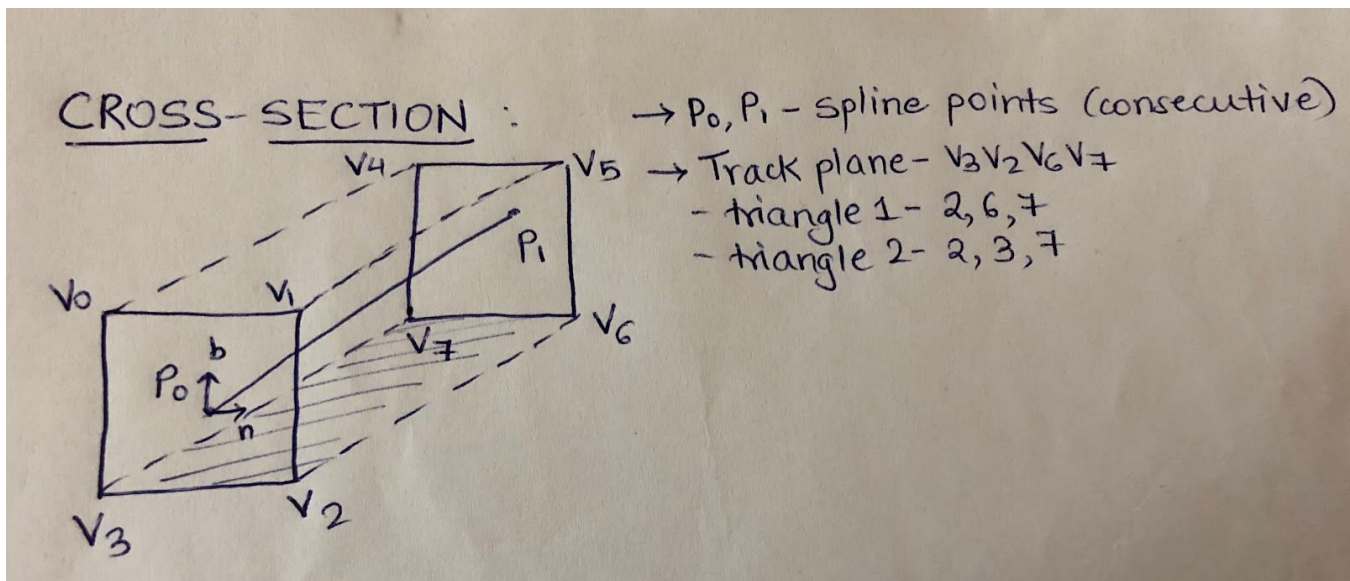 CROSS-SECTION :
→ P0, P1 - spline points (consecutive)
→ Track plane - V3 V2 V6 V7
- triangle 1 - 2, 6, 7
- triangle 2 - 2, 3, 7
V4
V5
P1
V0
V1
b
P0
n
V7
V6
V3
V2